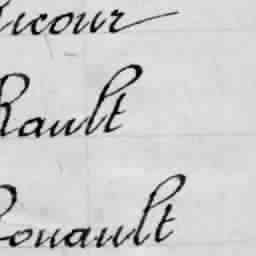 Ricour
Rault
Rouault